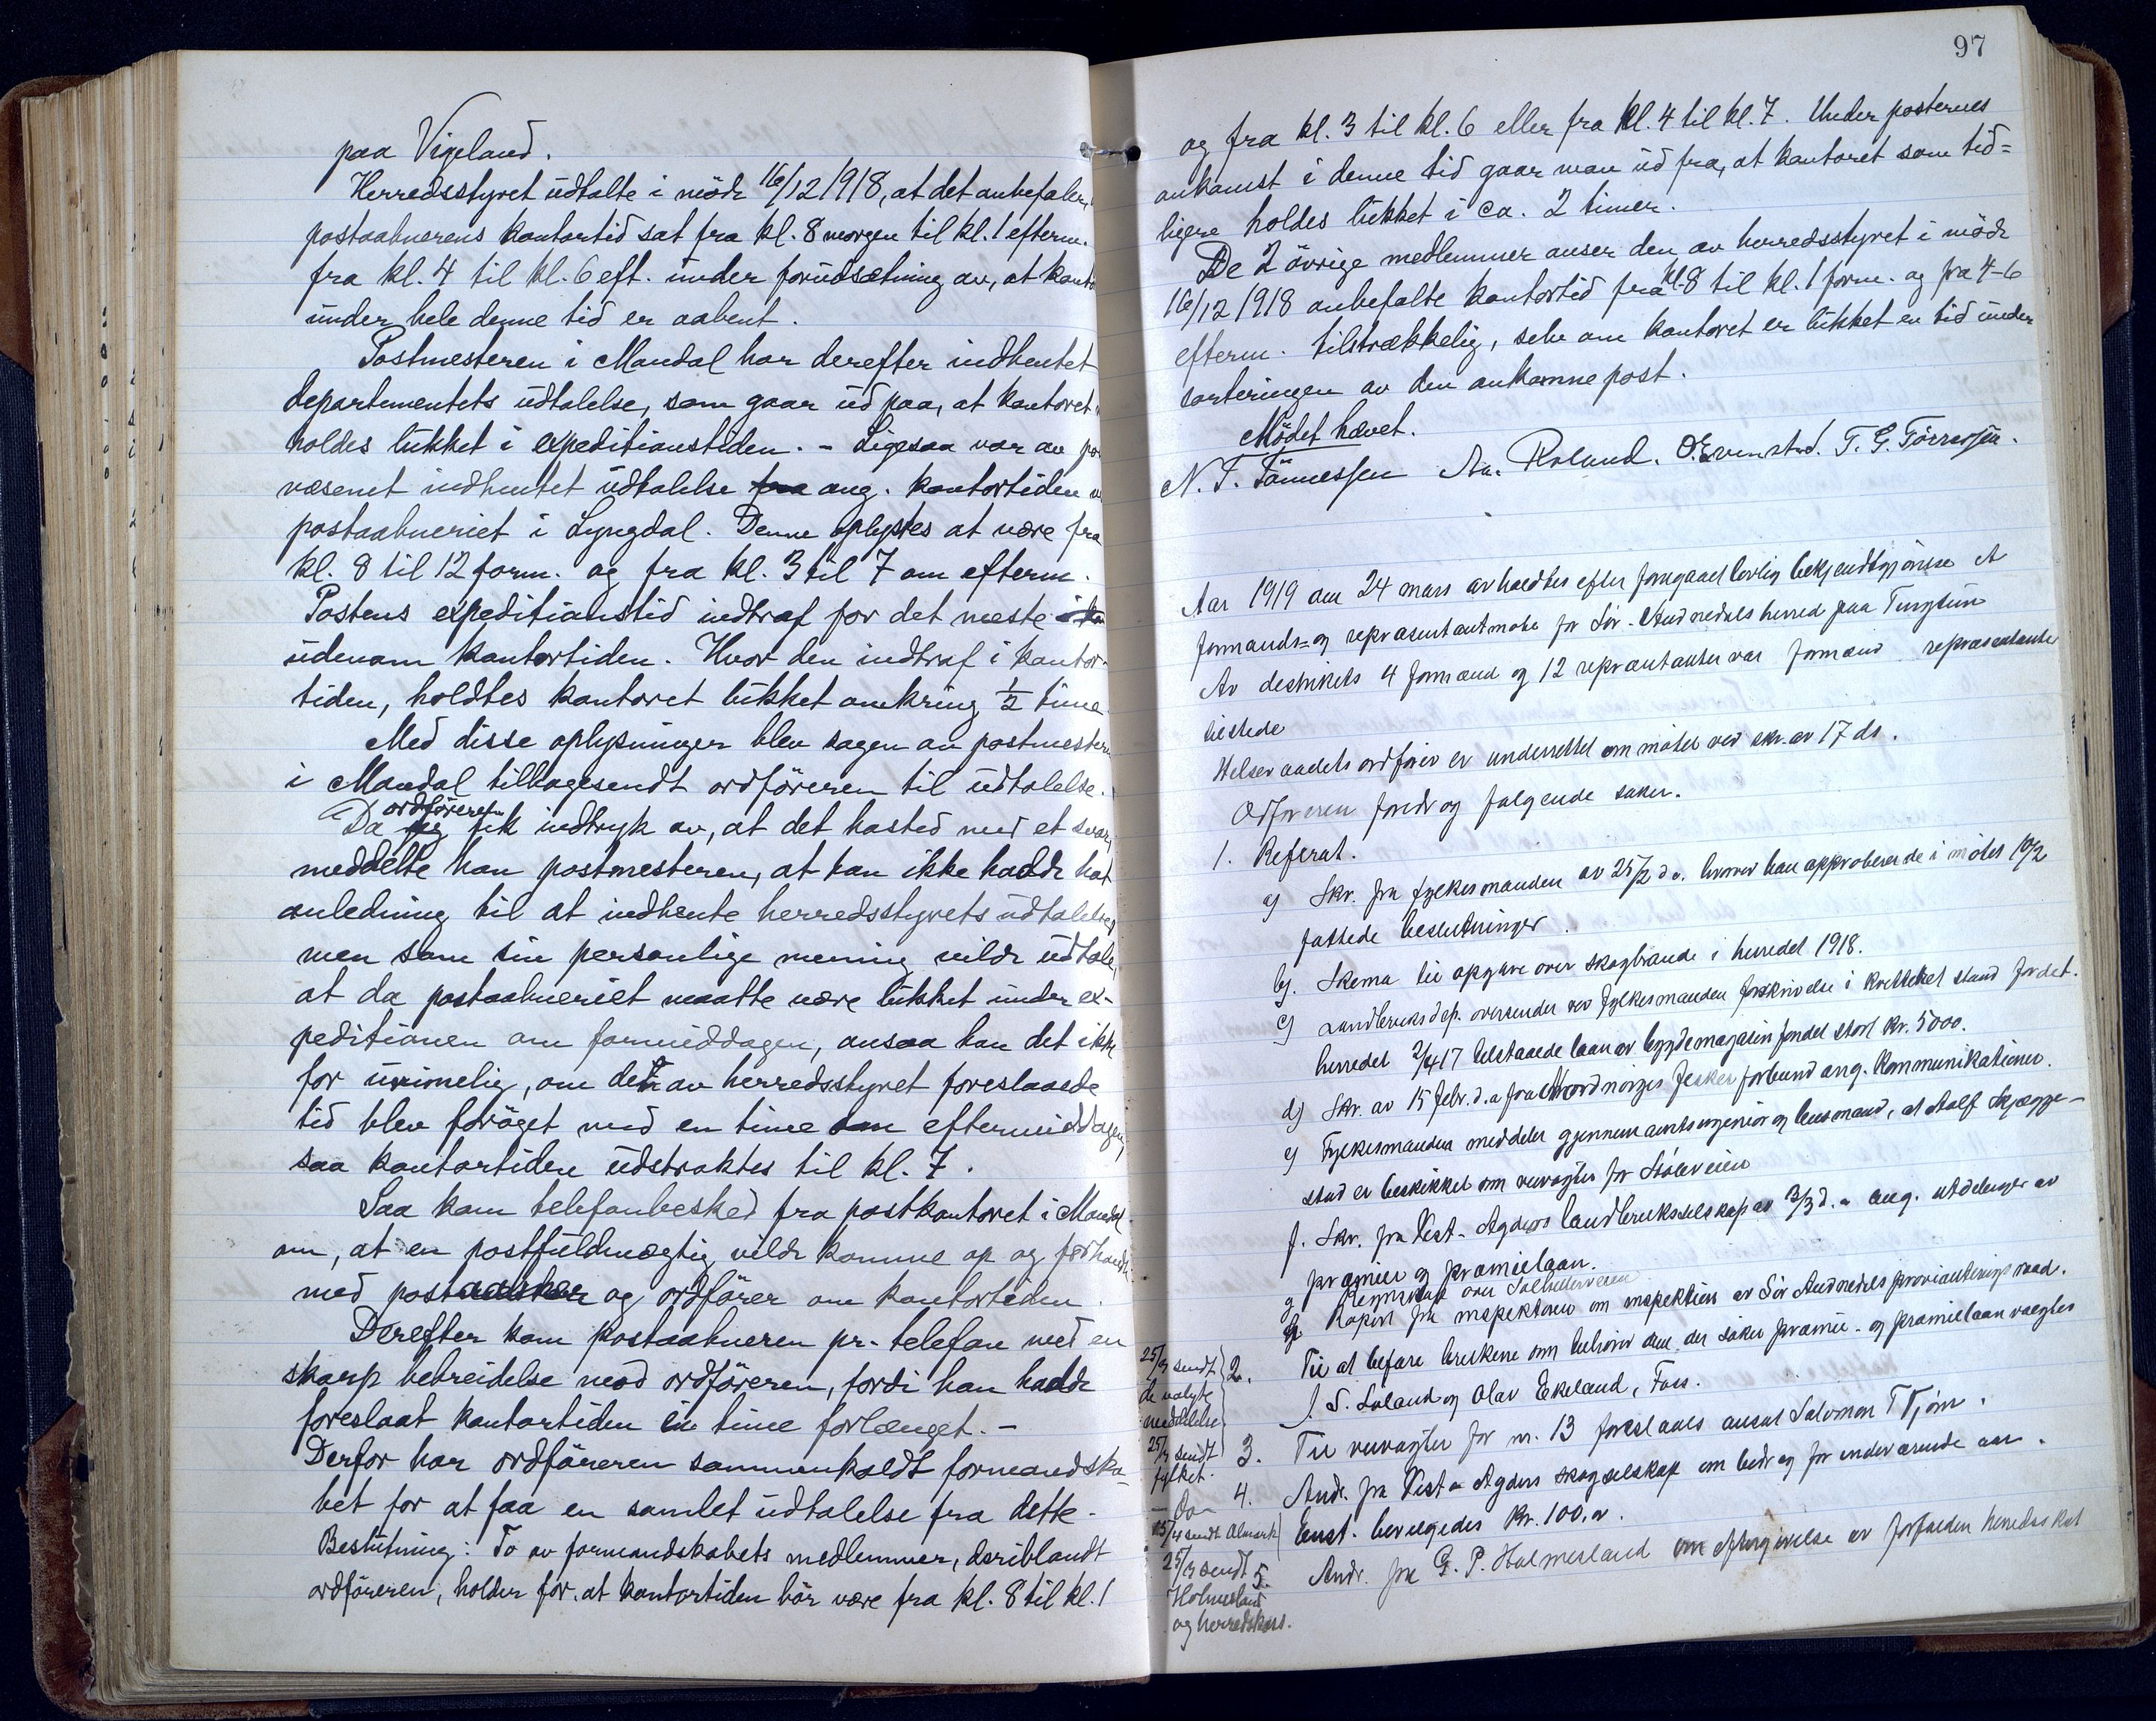 paa Vigeland.
Herredsstyret udtalte i möde 16/12 1918, at det anbefaler,
postaabnerens kontortid sat fra kl. 8 morgen til kl. 1 efterm.
fra kl. 4 til kl. 6 eft. under forudsætning av, at kont
under hele denne tid er aabent.
Postmesteren i Mandal har derefter indhentet
departementets udtalelse, som gaar ud paa, at kontoret
holdes lukket i expeditionstiden. - Ligesaa var av po
væsenet indhentet udtalelse ang. kontortiden v
postaabneriet i Lyngdal. Denne oplystes at være fra
kl. 8 til 12 form. og fra kl. 3 til 7 om efterm.
Postens expeditionstid indtraf for det meste
udenom kontortiden. Hvor den indtraf i kontor-
tiden, holdtes kontoret lukket omkring 1/2 time.
Med disse oplysninger blev sagen av postmesteren
i Mandal tilbagesendt ordföreren til udtalelse.
Da ordföreren fik indtryk av, at det hasted med et svar,
meddelte han postmesteren, at han ikke hadde hat
anledning til at indhente herredsstyrets udtalelse,
men som sin personlige mening vilde udtale,
at da postaabneriet maatte være lukket under ex-
peditionen om formiddagen, ansaa han det ikke
for urimelig, om den av herredsstyret foreslaaede
tid blev foröget med en time om eftermiddagen,
saa kontortiden udstraktes til kl. 7.
Saa kom telefonbesked fra postkontoret i Mandal
om, at en postfuldmægtig vilde komme op og forhandle
med postaabner og ordförer om kontortiden.
Derefter kom postaabneren pr. telefon med en
skarp bebreidelse mod ordföreren, fordi han hadde
foreslaat kontortiden en time forlænget. -
Derfor har ordföreren sammenkaldt formandska-
bet for at faa en samlet udtalelse fra dette.
Beslutning: To av formandskabets medlemmer, deriblandt
ordföreren, holder for, at kontortiden bör være fra kl. 8 til kl. 1
97
og fra kl. 3 til kl. 6 eller fra kl. 4 til kl. 7. Under posternes
ankomst i denne tid gaar man ud fra, at kontoret som tid=
ligere holdes lukket i ca. 2 timer.
De 2 övrige medlemmer anser den av herredsstyret i möde
16/12 1918 anbefalte kontortid fra kl. 8 til kl. 1 form. og fra 4-6
efterm. tilstrækkelig, selv om kontoret er lukket en tid under
sorteringen av den ankomne post.
Mödet hævet.
N. T. Tönnessen Aa. Roland. O. Evenstad. T. G. Törresen.
Aar 1919 den 24 mars avholdtes efter foregaael lovlig bekjendtgjörelse
formands- og repræsentantmöte for Sör-Audnedals herred paa Tungtun
Av destriktets 4 formænd og 12 repræntanter var formænd repræsentanter
tilstede
Helseraadets ordförer er underrettet om mötet ved skr. av 17 ds.
Odföreren foredrog fölgende saker.
1. Referat.
a) Skr. fra fylkesmanden av 25/2 d.a. hvorved han approberer de i mötet 10/2
fattede beslutninger.
b). Skema til opgave over skogbrande i herredet 1918.
c) Landbruksdep. oversender ved fylkesmanden forskrivelse i kvitteket stand for det.
herredet 2/4 17 tilstaaede laan av bygdemagasinfondet stort kr. 5000.
d) Skr. av 15 febr. d.a fra Nordnorges fesker forbund ang. kommunikationer.
e) Fylkesmanden meddeler gjennem amtsingeniör og lensmand, at Adolf Skjægge-
stad er beskikket som veivogter for Stöleveien
f. Skr. fra Vest-Agders landbruksselskap av 3/3 d.a ang. utdelinger av
præmier og præmielaan.
g Regnskap over
h. Raport fra inspektören om inspektion av Sör Audnedals provianteringsraad.
2. Til at befare brukene om behöver den der söker præmie- og præmielaan vælgtes
J. S. Loland og Olav Ekeland, Foss.
3. Til veivogter for nr. 13 foreslaaes ansat Salomon T Tjöm.
4. Andr. fra Vest-Agders skogselskap om bedrag for indeværende aar.
Enst. bevilgedes kr. 100,00.
Andr. fra G. P. Holmesland om eftergivelse av forfalden herredsskat
25/3 sendt
de valgte
meddelelse
25/3 sendt
fylket.
Do
15/4 sendt
25/3 sendt 5.
Holmesland
og herredskass.